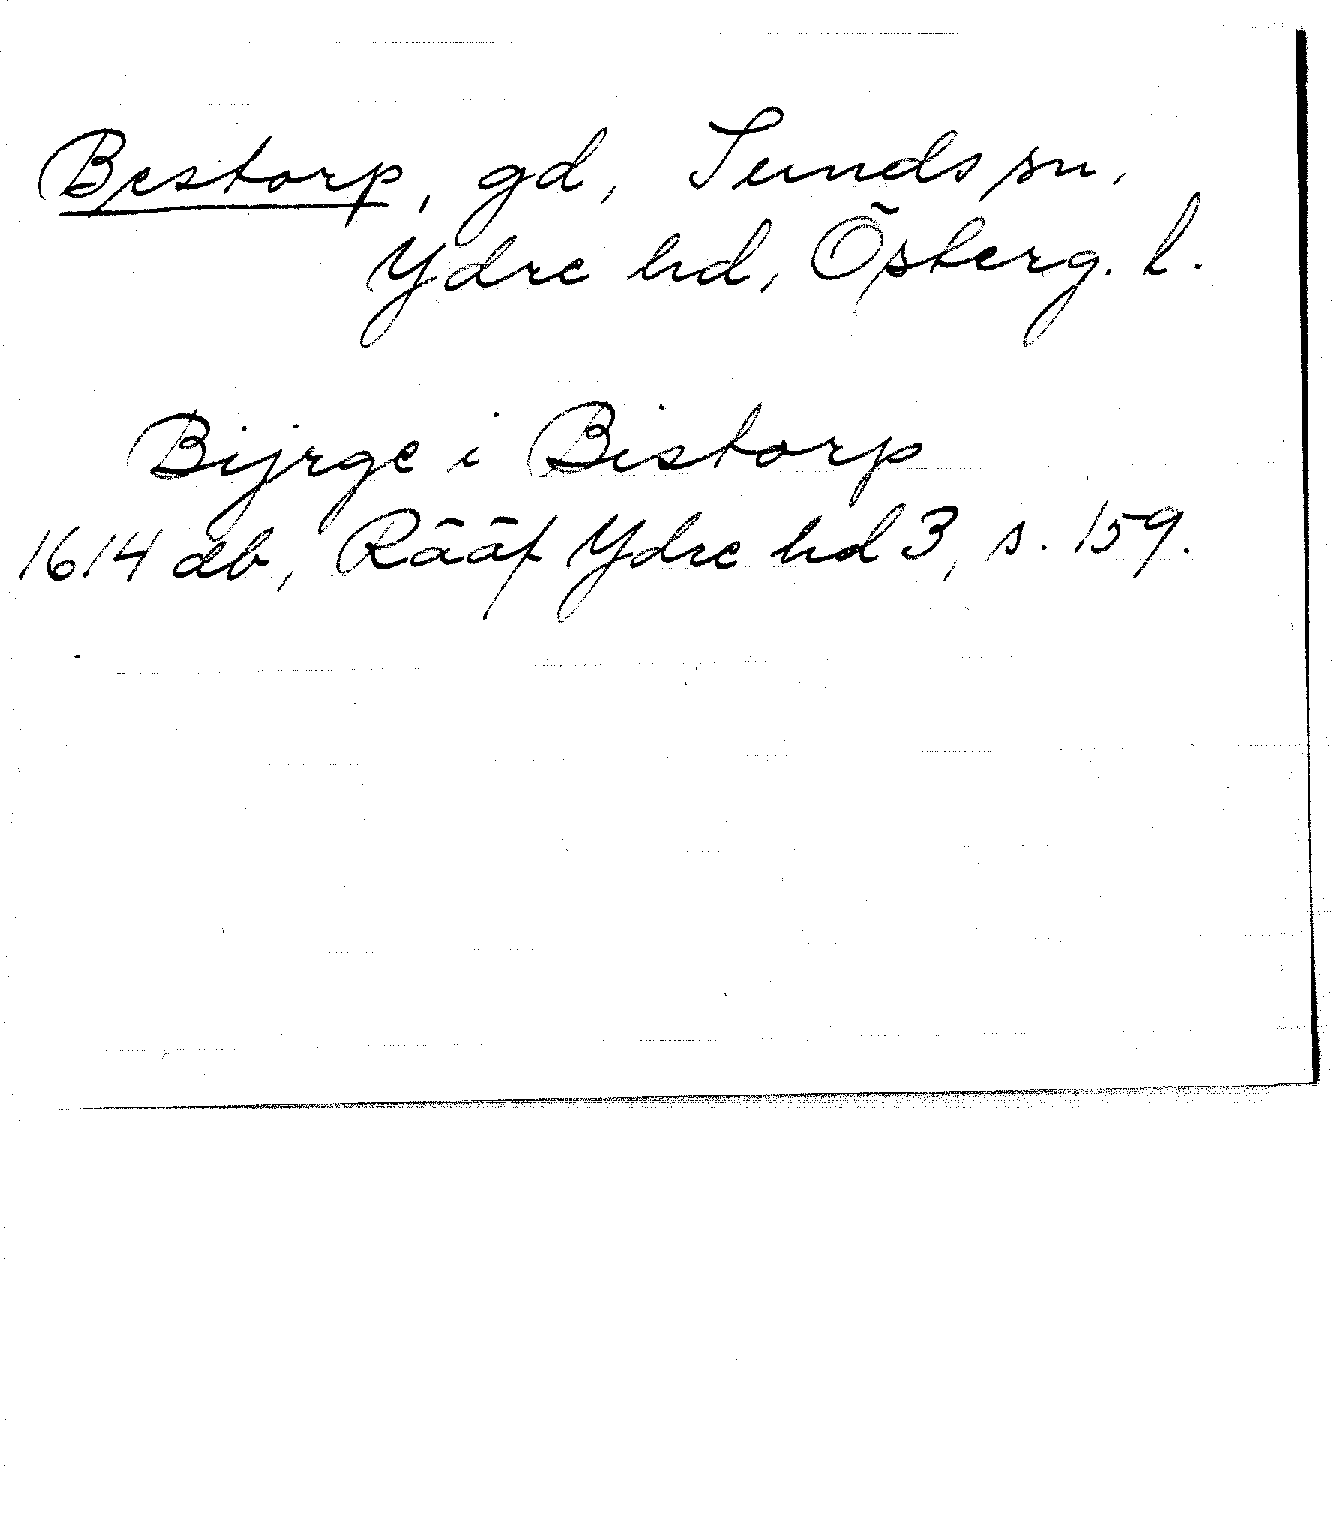 Bestorp, gd, Sunds sn,
Ydre hd, Österg. l.
Bijrge i Bistorp
1614 db, Rääf Ydre hd 3, s. 159.